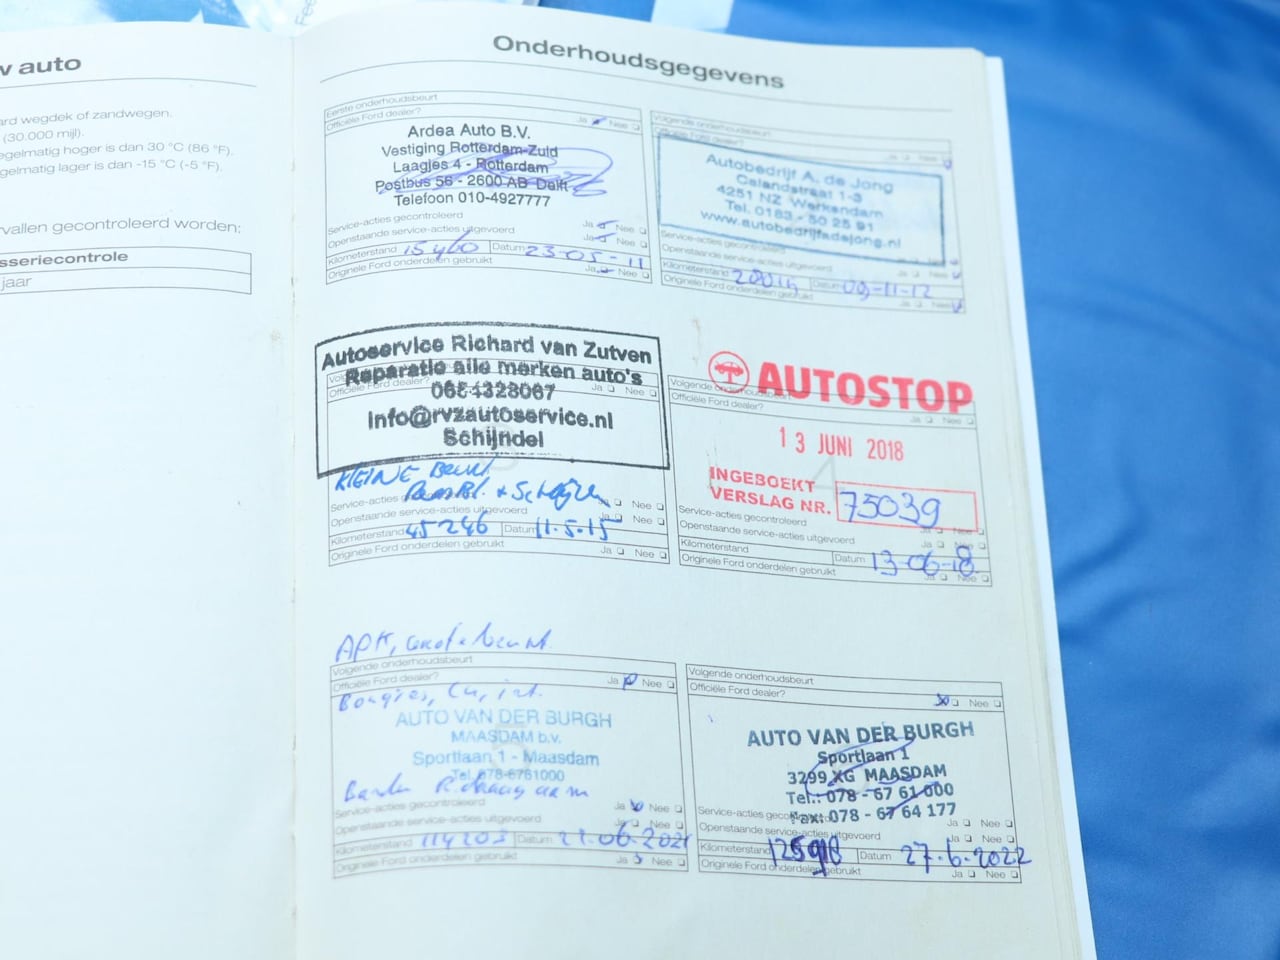 w auto
ard wegdek of zandwegen.
(30.000 mijl).
egelmatig hoger is dan 30 °C (86 °F).
gelmatig lager is dan -15 °C (-5 °F).
rvallen gecontroleerd worden:
sseriecontrole
jaar
Onderhoudsgegevens
Eerste onderhoudsbeurt
Officiële Ford dealer? Ja Nee
Ardea Auto B.V.
Vestiging Rotterdam-Zuid
Laagjes 4 - Rotterdam
Postbus 56 - 2600 AB Delft
Telefoon 010-4927777
Service-acties gecontroleerd Ja Nee
Openstaande service-acties uitgevoerd Ja Nee
Kilometerstand 15460 Datum 23-05-11
Originele Ford onderdelen gebruikt Ja Nee
Volgende onderhoudsbeurt
Officiële Ford dealer? Ja Nee
Autobedrijf A. de Jong
Calandstraat 1-3
4251 NZ Werkendam
Tel. 0183 - 50 25 91
www.autobedrijfadejong.nl
Service-acties gecontroleerd
Openstaande service-acties uitgevoerd Ja Nee
Kilometerstand Datum 09-11-12
Originele Ford onderdelen gebruikt Ja Nee
Autoservice Richard van Zutven
Reparatie alle merken auto's
0654328067
Info@rvzautoservice.nl
Schijndel
Officiële Ford dealer? Ja Nee
KLEINE Beurt
+ Schijven
Service-acties Ja Nee
Openstaande service-acties uitgevoerd Ja Nee
Kilometerstand 45246 Datum 11-5-15
Originele Ford onderdelen gebruikt Ja Nee
AUTOSTOP
Volgende onderhoudsbeurt
Officiële Ford dealer? Ja Nee
13 JUNI 2018
4
INGEBOEKT
VERSLAG NR. 75039
Service-acties gecontroleerd Ja Nee
Openstaande service-acties uitgevoerd Ja Nee
Kilometerstand Datum 13-06-18
Originele Ford onderdelen gebruikt Ja Nee
APK, Grote beurt
Volgende onderhoudsbeurt
Officiële Ford dealer? Ja Nee
Bougies,
AUTO VAN DER BURGH
MAASDAM b.v.
Sportlaan 1 - Maasdam
Tel. 078-6761000
Service-acties gecontroleerd Ja Nee
Openstaande service-acties uitgevoerd Ja Nee
Kilometerstand 114203 Datum 21-06-2021
Originele Ford onderdelen gebruikt Ja Nee
Volgende onderhoudsbeurt
Officiële Ford dealer? Nee
AUTO VAN DER BURGH
Sportlaan 1
3299 XG MAASDAM
Tel.: 078 - 67 61 000
Fax: 078 - 67 64 177
Service-acties Ja Nee
Openstaande service-acties uitgevoerd Ja Nee
Kilometerstand Datum 27-6-2022
Originele Ford onderdelen gebruikt Ja Nee